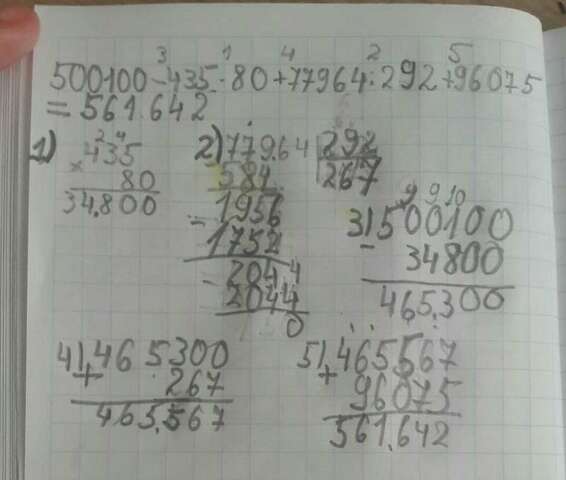 3 1 4 2 5
500100-435·80+77964:292+96075
=561.642
1) 2 4
435
×
80
34.800
2) 77964 | 292
584 | 267
1956
-
1752
2044
-
2044
0
3) 9 9 10
500100
-
34800
465.300
4) 465300
+
267
465.567
5) 465567
+
96075
561.642